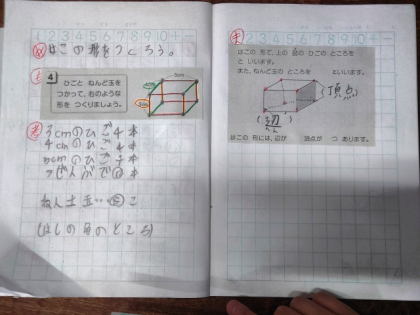 1 2 3 4 5 6 7 8 9 10 +
め はこの形をつくろう。
も
4 ひごと ねんど玉を
つかって、右のような
形を つくりましょう。
5cm
考
3cmのひご4本
4cmのひご4本
5cmのひご4本
ぜんぶで
ねん土玉…⑧こ
(はしの角のところ)
ま
2 3 4 5 6 7 8 9 10 +
はこの 形で、上の 図の ひごの ところを
と いいます。
また、ねんど玉の ところを といいます。
(頂点)
(辺)
へん
はこの 形には、辺が 頂点が つ あります。